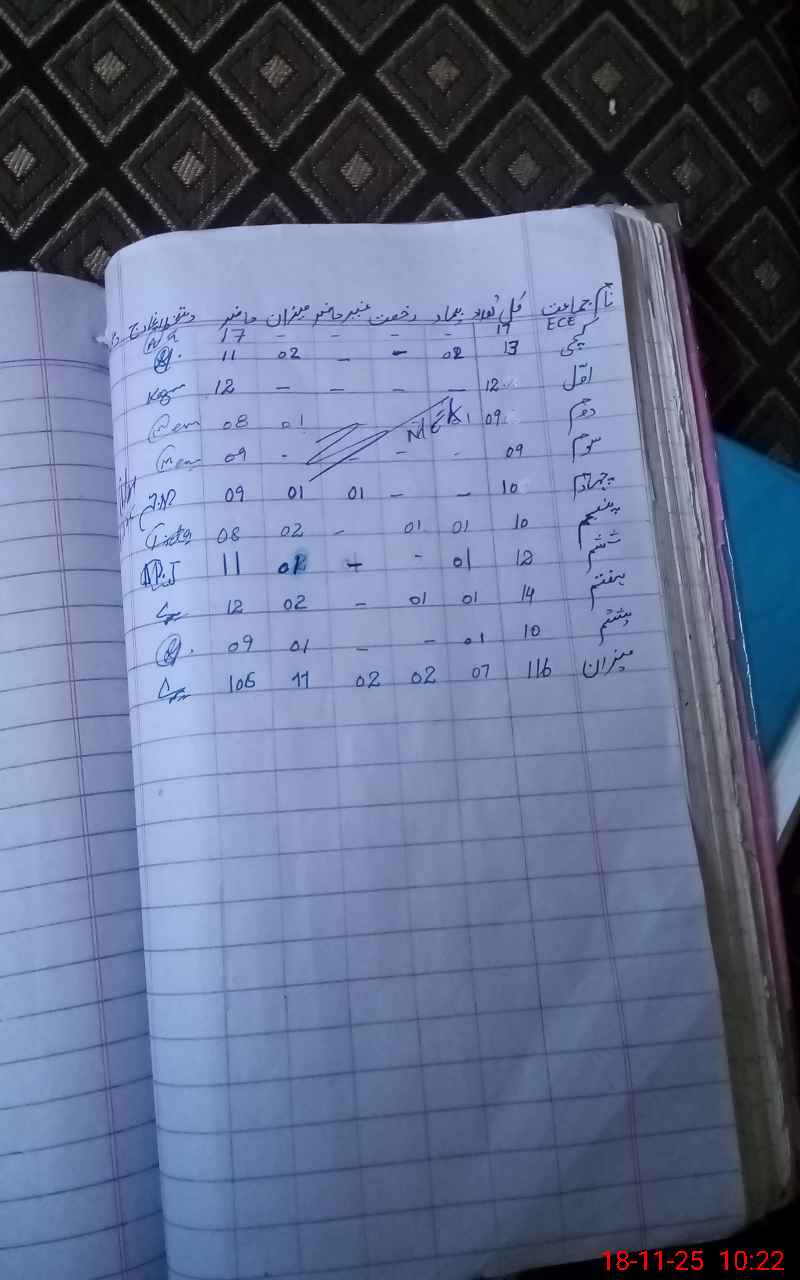 نام جماعت کل تعداد بیمار رخصت غیر حاضر میزان حاضر دستخط انچارج
ECE 17 - - - - 17
کچی 13 02 - - 02 11
اول 12 - - - - 12
دوم 09 01 - 01 08
سوم 09 - - - - 09
چہارم 10 - - 01 01 09
پنجم 10 01 01 - 02 08
ششم 12 01 - - 01 11
ہفتم 14 01 01 - 02 12
ہشتم 10 01 - - 01 09
میزان 116 07 02 02 11 106
18-11-25 10:22